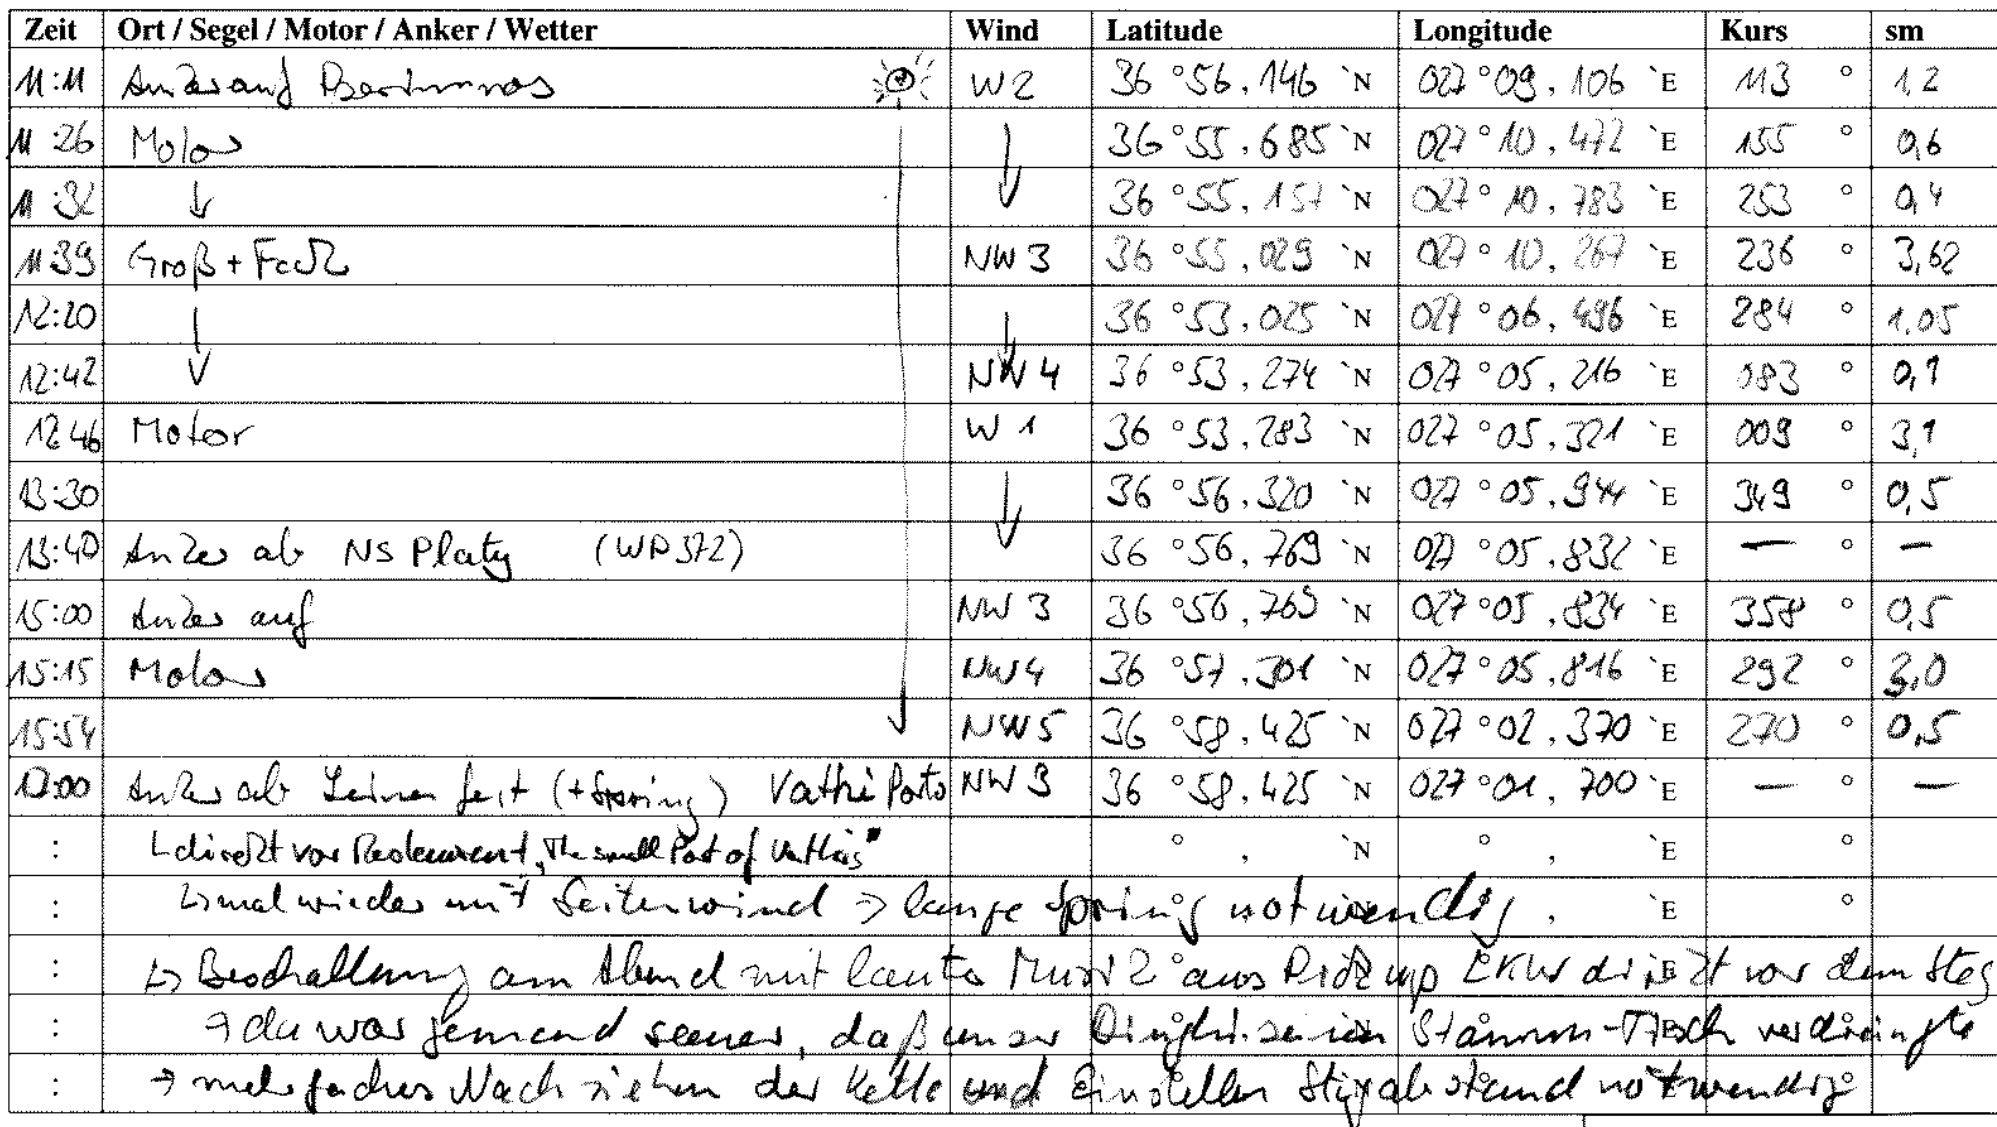 Zeit Ort / Segel / Motor / Anker / Wetter Wind Latitude Longitude Kurs sm
11:11 Anker auf W2 36 °56, 146 `N 027 °09, 106 `E 113 ° 1,2
11:26 Motor 36 °55, 685 `N 027 °10, 472 `E 155 ° 0,6
11:32 ↓ 36 °55, 157 `N 027 °10, 783 `E 253 ° 0,4
11:39 Groß + Fock NW 3 36 °55, 029 `N 027 °10, 267 `E 236 ° 3,62
12:20 36 °53, 025 `N 027 °06, 496 `E 284 ° 1,05
12:42 NW 4 36 °53, 274 `N 027 °05, 216 `E 083 ° 0,1
12:46 Motor W 1 36 °53, 283 `N 027 °05, 321 `E 009 ° 3,1
13:30 36 °56, 320 `N 027 °05, 944 `E 349 ° 0,5
13:40 Anker ab NS Platy (WP372) 36 °56, 769 `N 027 °05, 832 `E — ° —
15:00 Anker auf NW 3 36 °56, 769 `N 027 °05, 834 `E 358 ° 0,5
15:15 Motor NW4 36 °57, 301 `N 027 °05, 816 `E 292 ° 3,0
15:54 NW5 36 °58, 425 `N 027 °02, 370 `E 270 ° 0,5
17:00 Anker ab Leinen fest (+Spring) Vathi Porto NW 3 36 °58, 425 `N 027 °01, 700 `E — ° —
: direkt vor Restaurant „The small Port of Vathis" ° , `N ° , `E °
: mal wieder mit Seitenwind → lange Spring notwendig , `E °
: Beschallung am Abend mit lauter Musik aus Pick up LKW direkt vor dem Steg
: → da war jemand sauer, daß unser Dinghi seinen Stamm-Tisch verdrängte
: → mehrfaches Nachziehen der Kette und Einstellen Stegabstand notwendig